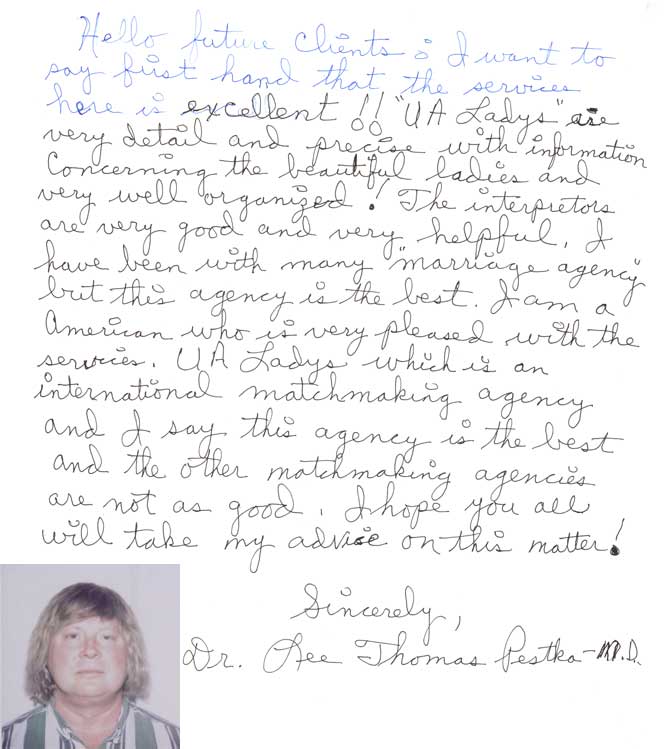 Hello future clients : I want to
say first hand that the services
here is excellent !! "UA Ladys" are
very detail and precise with information
Concerning the beautiful ladies and
very well organized! The interpretors
are very good and very helpful. I
have been with many "marriage agency"
but this agency is the best. I am a
American who is very pleased with the
services. UA Ladys which is an
international matchmaking agency
and I say this agency is the best
and the other matchmaking agencies
are not as good. I hope you all
will take my advise on this matter!
Sincerely,
Dr. Lee Thomas Pestka-M.D.